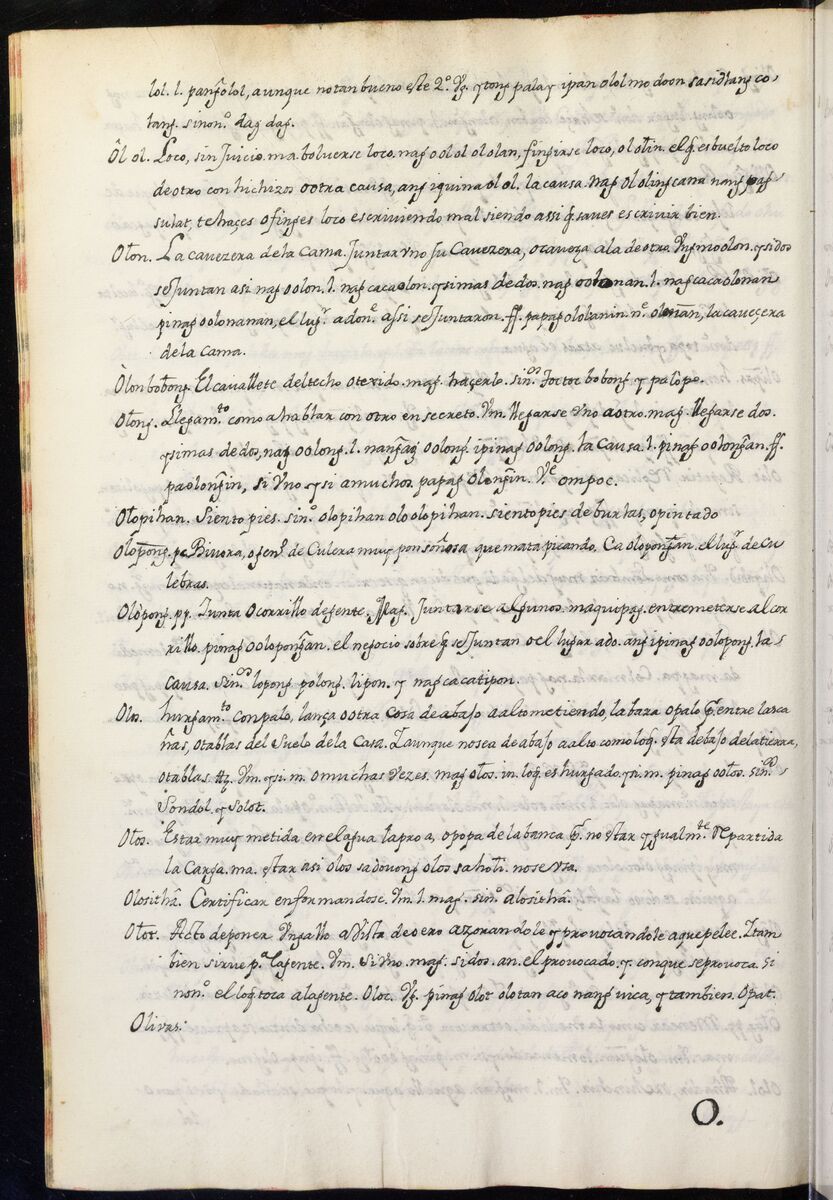 lol. l. pang̃olol, aunque no tan bueno este 2.º Vg. q̃ tong pala y ipan olol mo doon sa sidhang co-
tang. sinon.º dag dag.
Ôl ol. Loco, sin Juicio. ma. boluerse loco. mag ol ol ol olan, fingirse loco, ol olin. el q̃ es buelto loco
de otro con hichizos o otra causa, ang iquina ol ol. la causa. nag ol oling cana nang pag
sulat, te haçes o finges loco escriviendo mal siendo assi q̃ saues escrivir bien.
Olon. La cavezera de la Cama. Juntar vno su Cavezera, o caveza a la de otro. Vngmoolon. y si dos
se Juntan asi nag oolon. l. nag cacaolon. y si mas de dos. nag oolonan. l. nag cacaolonan
pinag oolonanan, el lug.r a don.e assi se Juntaron. ff. papag olohanin. n.º olonan, la caveçera
de la Cama.
Òlon bobong. El cavallete del techo o texido. mag. haçerle. sin.os Toctoc bobong y palopo.
Olong. Llegam.to como a hablar con otro en secreto. Vm. llegarse vno a otro. mag. llegarse dos.
y si mas de dos, nag oolong. l. nang̃ag oolong. ipinag oolong. la causa. l. pinag oolong̃an. ff.
pa olong̃in, si vno y si a muchos. papag olong̃in. V.e ompoc.
Olopihan. Siento pies. sin.º olopihan olo olopihan. siento pies de burlas, o pintado
Olopong. pc Bivora, o gen.º de Culebra muy ponsoñosa que mata picando. Ca olopong̃an. el lug.r de cu
lebras.
Olòpong. pp. Junta o corrillo de gente. Mag. Juntarse algunos. maquipag. entremeterse al cor
rillo. pinag oolopong̃an. el negocio sobre q̃ se Juntan o el lugar ado. ang ipinag oolopong. la
causa. Sin.os lopong polong. lipon. y nag cacatipon.
Olos. hurgam.to con palo, lança o otra cosa de abajo a alto metiendo, la bara o palo p.r entre las ca
ñas, o tablas del Suelo de la Casa. I aunque no sea de abajo a alto como lo q̃. esta debajo de la tierra,
o tablas. Vm. y si. m. o muchas vezes. mag olos. in. lo q̃ es hurgado. y si. m. pinag oolos. sin.os
Sondol. y Solot.
Olos. Estar muy metida en el agua la proa, o popa de la banca p.r no estar ygualm.te repartida
la Carga. ma. estar asi olos sa douong olos sa holi. no se vsa.
Olosithâ. Certificar enformandose. Vm. l. mag. sin.º alosithâ.
Olot. Acto de poner Vn gallo a vista de otro azorandole y provocandole a que pelee. I tam
bien sirve p.a la gente. Vm. Si vno. mag. si dos. an. el provocado. y con que se provoca. Si
non.º el lo q̃ toca a la gente. Oloc. Vg. pinag olot olotan aco nang vica, y tambien. Opat.
Olivas.
O.